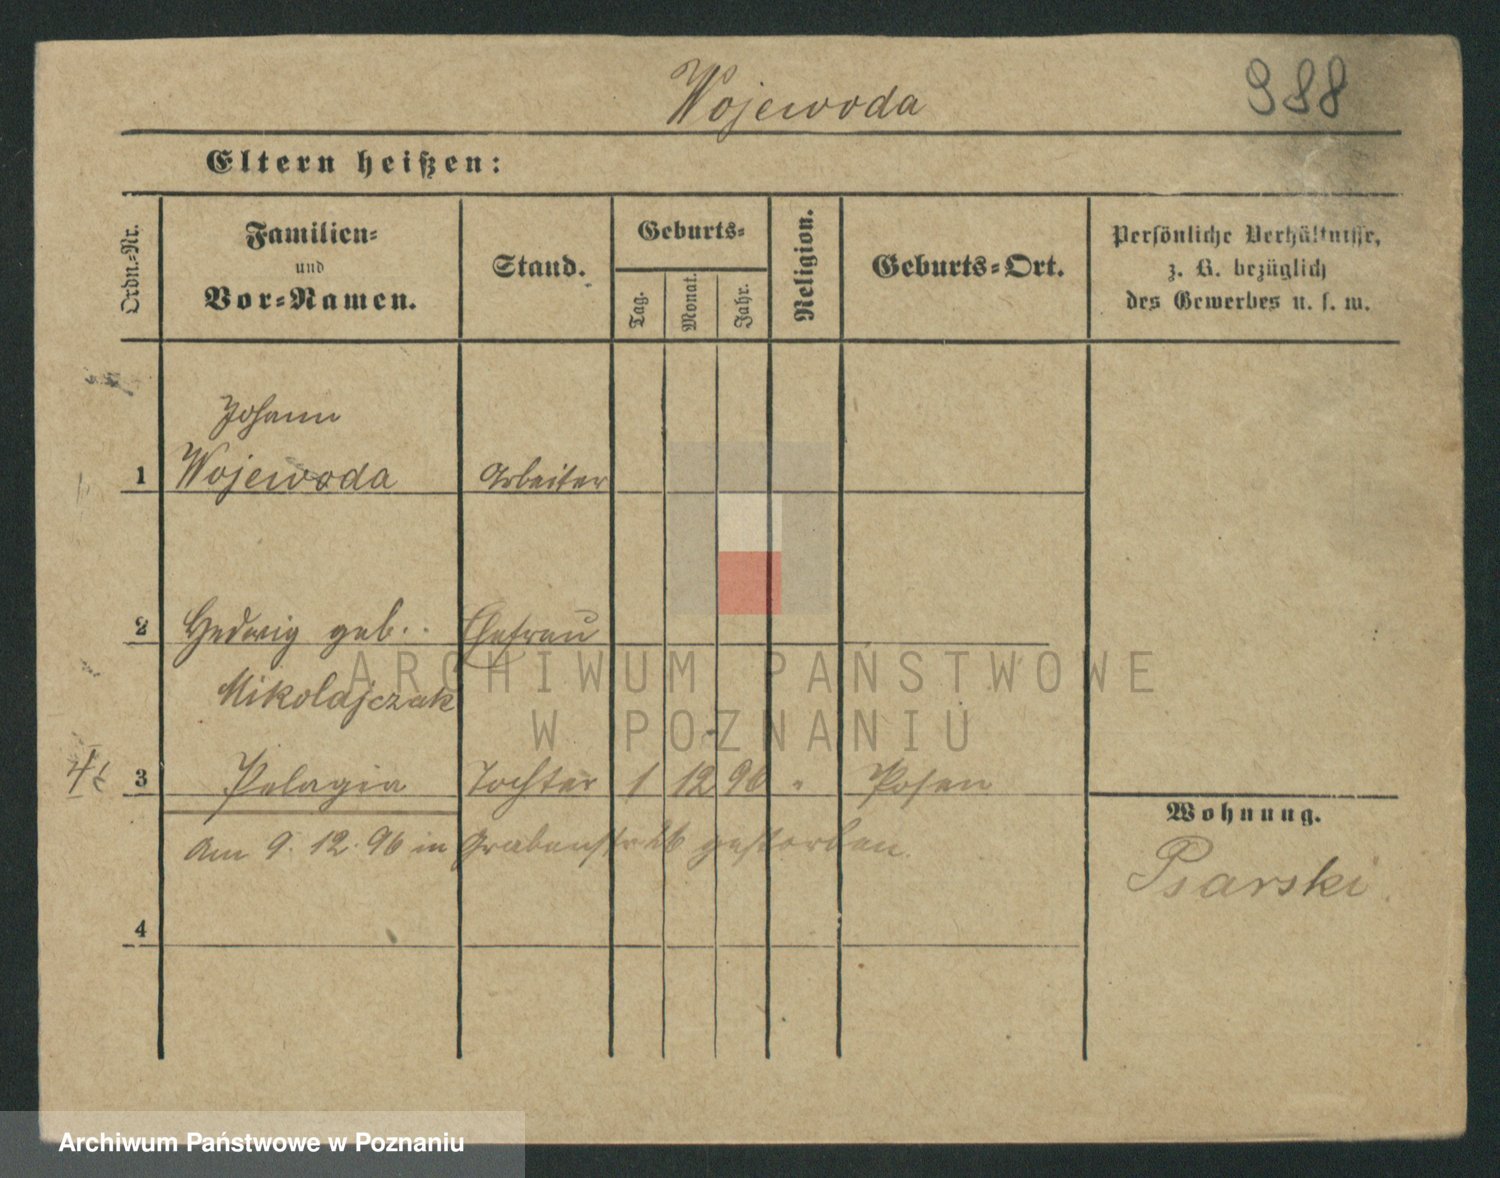 Wojewoda
988
Eltern heißen:
Ordn.-Nr.
Familien-
und
Vor-Namen.
Stand.
Geburts-
Tag.
Monat.
Jahr.
Religion.
Geburts-Ort.
Persönliche Verhältnisse,
z. B. bezüglich
des Gewerbes u. s. w.
Johann
1 Wojewoda Arbeiter
2 Hedwig geb. Ehefrau
Mikolajczak
3 Pelagia Tochter 1 12 96 " Posen
Am 9. 12. 96 in Grabenstr 26 gestorben.
4
Wohnung.
Psarski
ARCHIWUM PAŃSTWOWE
W POZNANIU
Archiwum Państwowe w Poznaniu